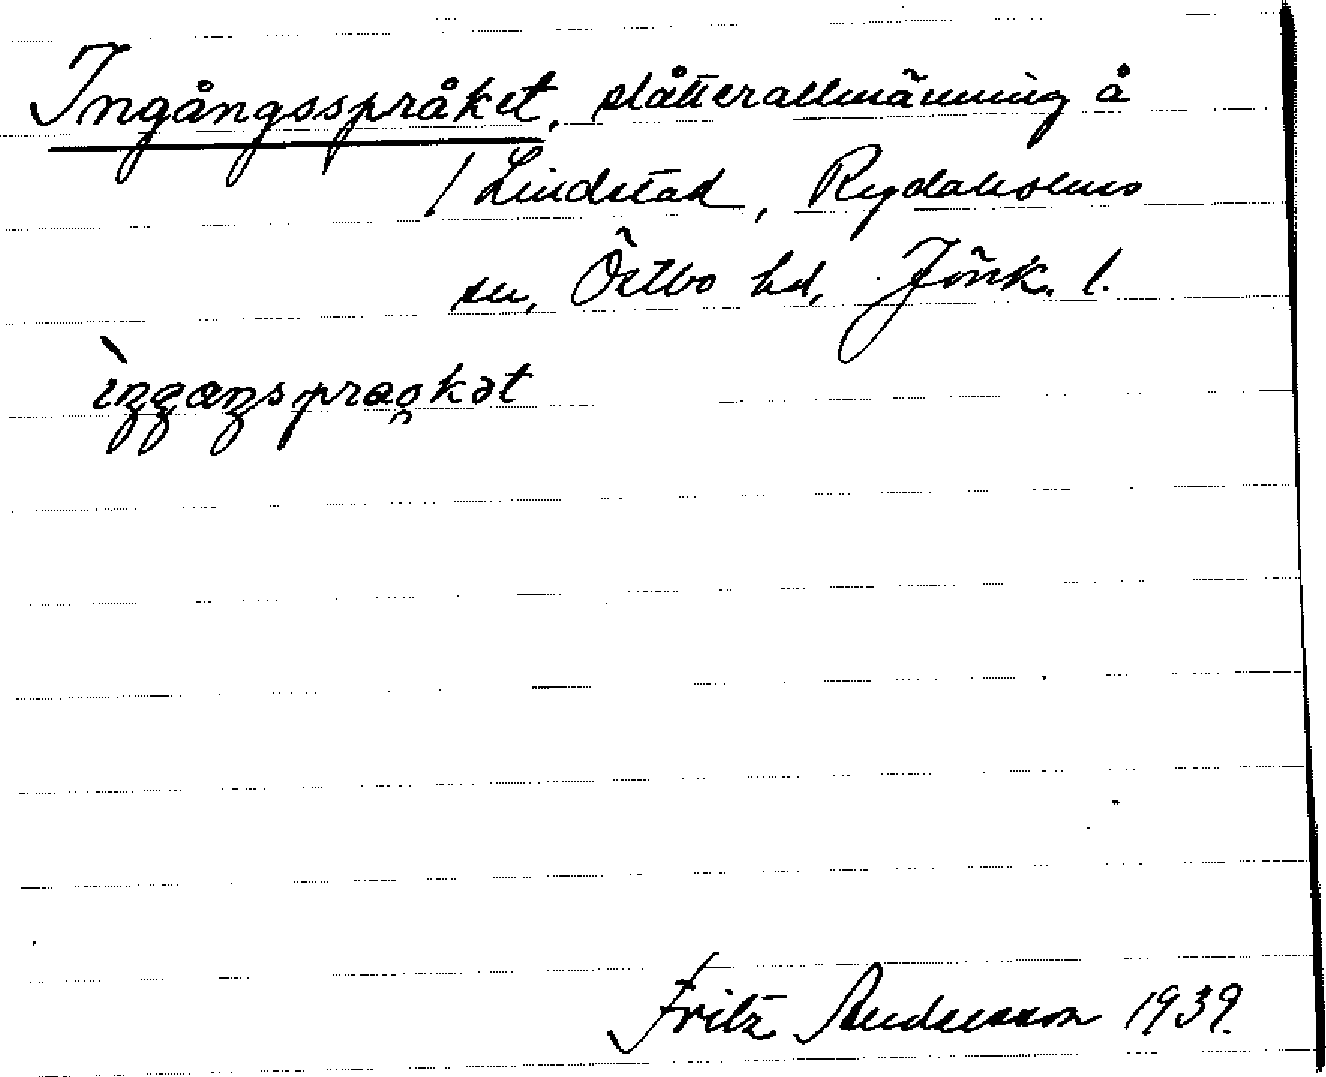 Ingångsspråket, slåtterallmänning å
/ Lindstad, Rydaholms
sn, Östbo hd, Jönk. l.
ìŋgaŋspraǫkət
Fritz Andersson 1939.